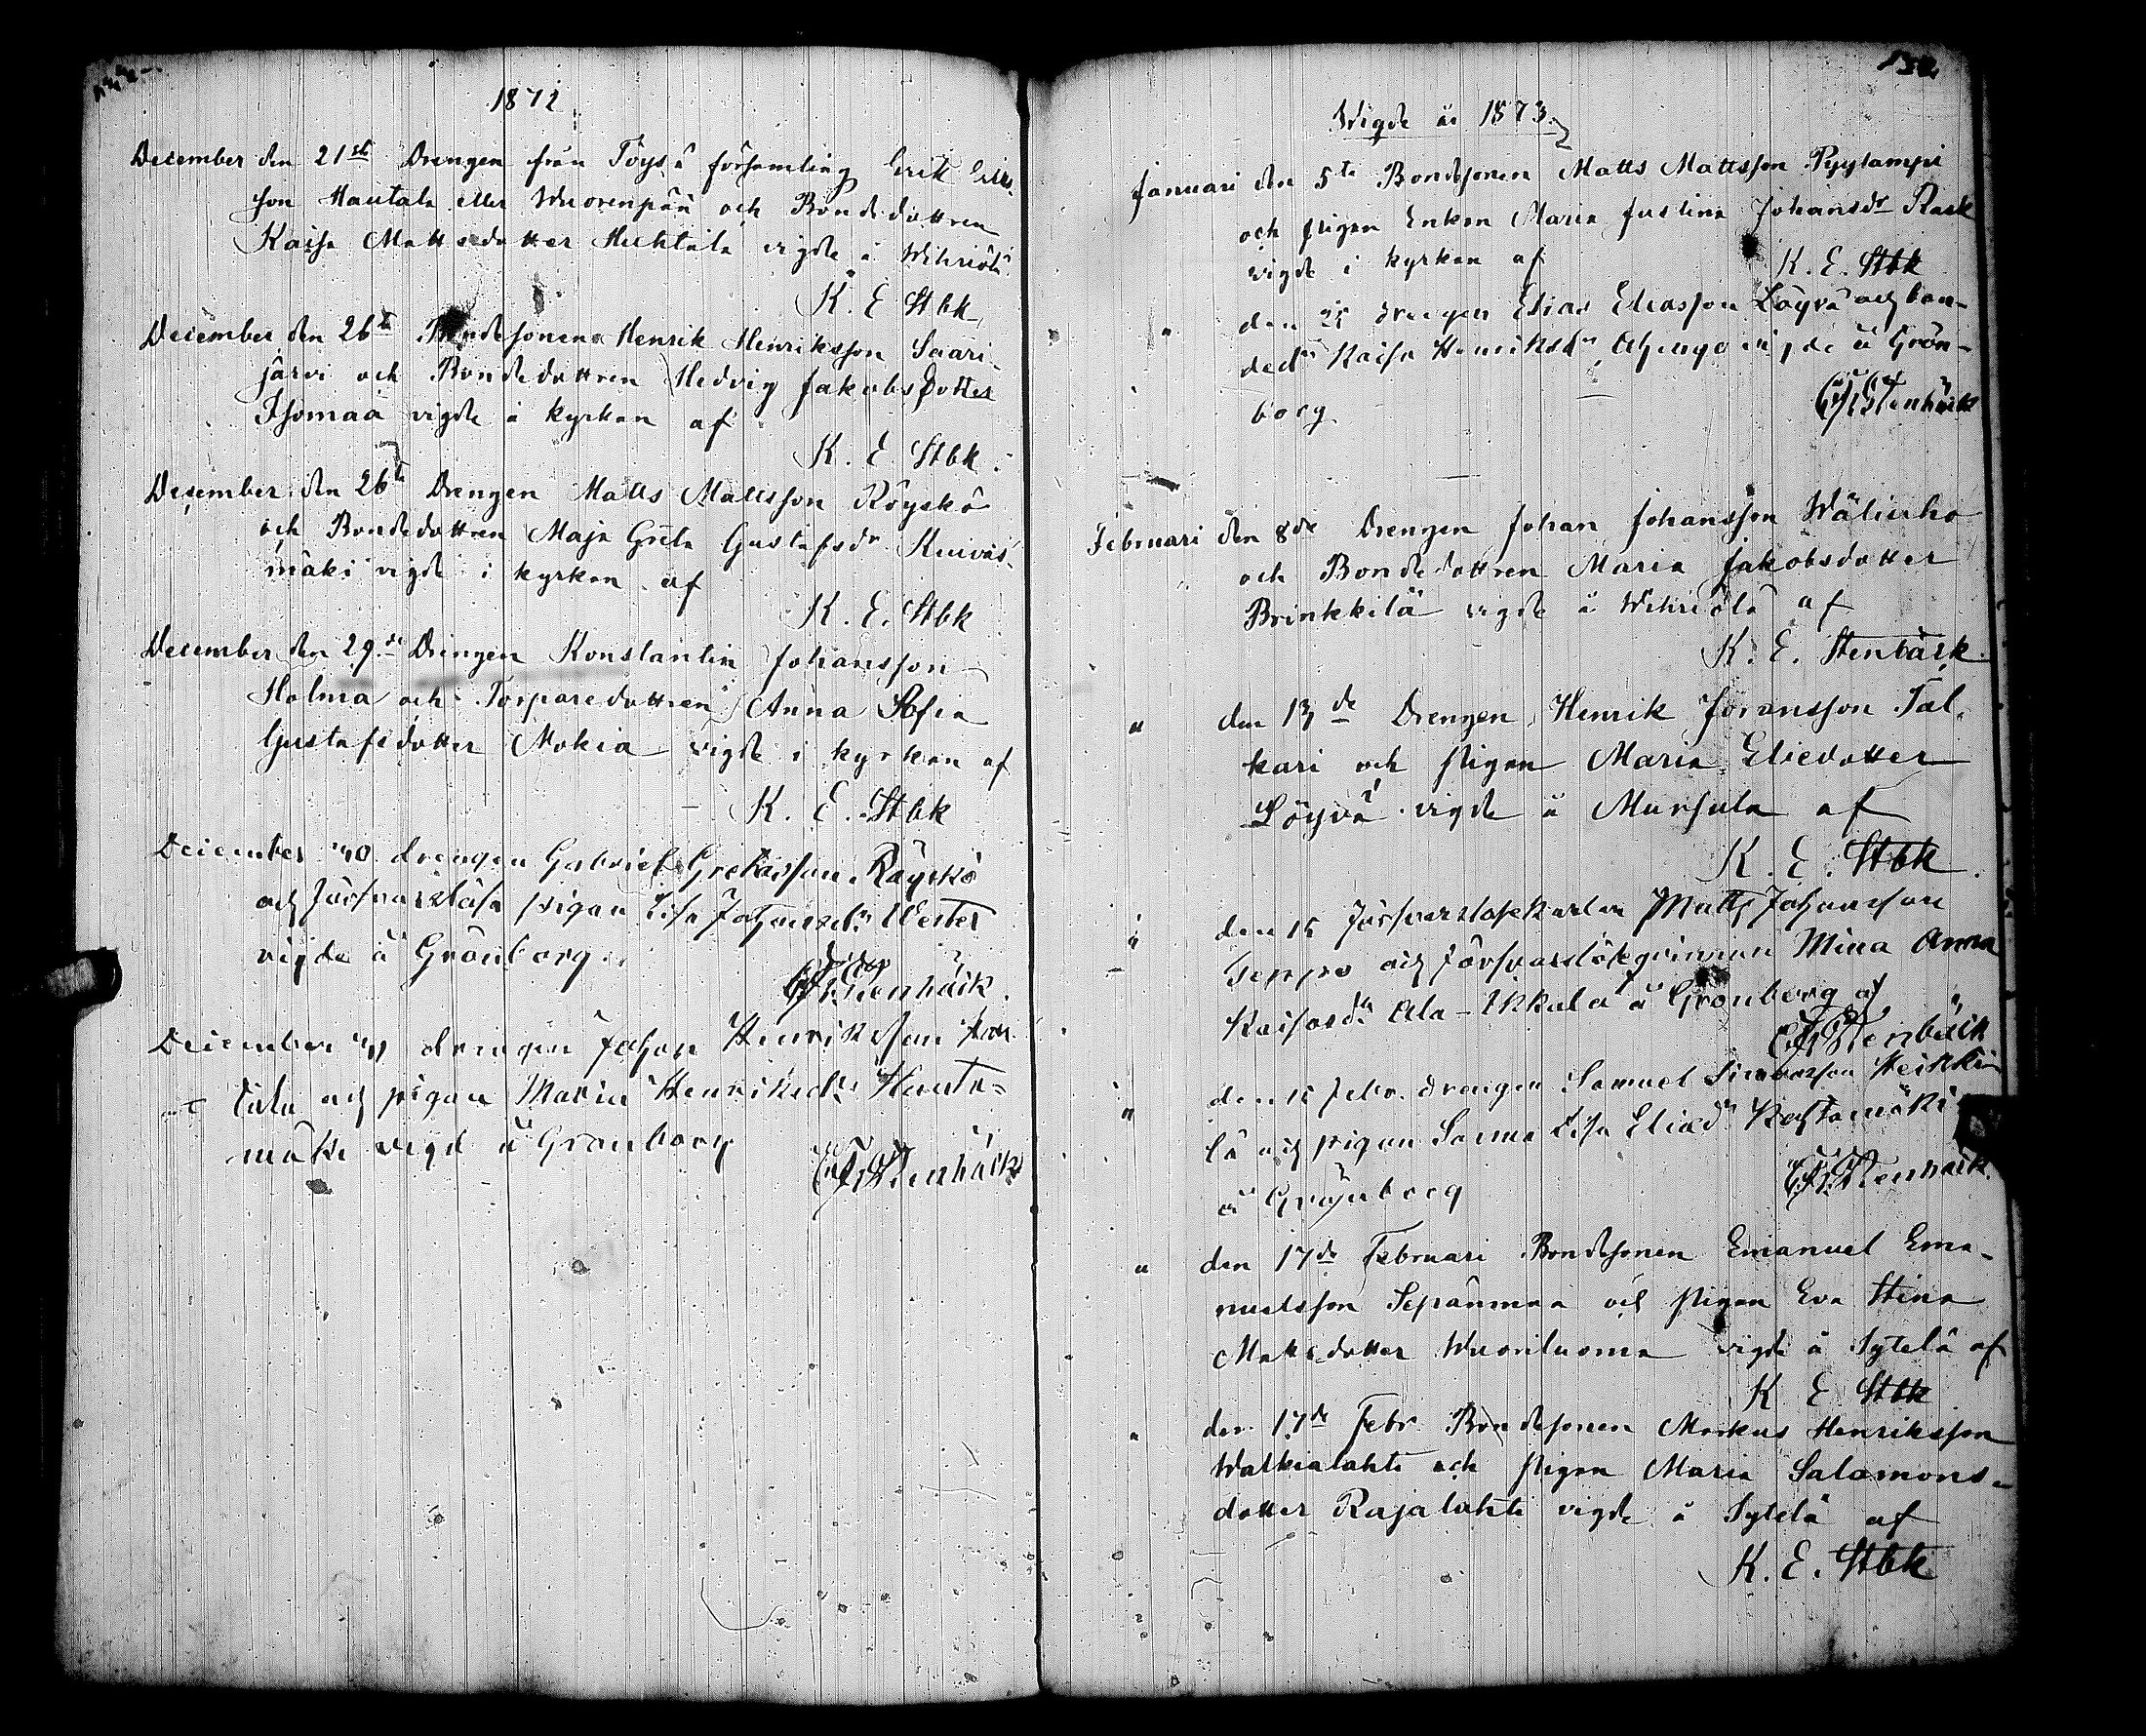 1872
December den 21sta Drengen från Töysä församling Erik Eriks-
son Hautala eller Wuorenpää och Bondedottren
Kaisa Mattsdotter Huhtala vigde å Wihriälä
K. E Stbk
December den 26te Bondesonen Henrik Henriksson Saari-
järvi och Bondedottren Hedvig Jakobsdotter
Isomaa vigde i kyrkan af
K. E Stbk.
December den 26te Drengen Matts Mattsson Röyskö
och Bondedottren Maja Greta Gustafsdr Kuivas-
mäki vigde i kyrkan af
K. E. Stbk
December den 29de Drengen Konstantin Johansson
Holma och Torparedottren Anna Sofia
Gustafsdotter Mokia vigde i kyrkan af
K. E. Stbk
December 30 drengen Gabriel Röyskö
och försvarslösa pigan Lisa Johansdr Wester
vigde å Grönborg
Stenbäck.
December 31 drengen Johan Henriksson
tala och pigan Maria Henriksdr Hauta-
mäki vigd å Grönborg
Stenbäck
132
Wigde år 1873.
Januari den 5te Bondesonen Matts Mattsson Pyylampi
och pigan Enkan Maria Justina Johansdr Rask
vigde i kyrkan af
K. E. Stbk
" den 25 drengen Elias Eliasson Löyvä och bon-
dedr Kaisa Henriksdr vigde å Grön-
borg
Stenbäck
Februari den 8de Drengen Johan Johansson Wäliaho
och Bondedottren Maria Jakobsdotter
Brinkkilä vigde å Wihriälä af
K. E. Stenbäck.
" den 13de Drengen Henrik Joransson Tal-
kari och pigan Maria Eliedotter
Löyvä vigde å Mursula af
K. E. Stbk.
" den 15 försvarslösekarlen Matts Johansson
Seppo och försvarslöseqvinnan Mina Anna
Kaisasdr Ala-Ikkala å Grönborg af
Stenbäck
" den 15 febr. drengen Samuel Simonsson Heikki-
lä och pigan Sanna Lisa Eliasdr
å Grönborg
Stenbäck.
" den 17de Februari Bondesonen Emanuel Ema-
nuelsson Sepänmaa och pigan Eva Stina
Mattsdotter Wuoriluoma vigde å Sytelä af
K E Stbk
" den 17de Febr Bondesonen Markus Henriksson
Walkialahti och pigan Maria Salomons-
dotter Rajalahti vigde å Sytelä af
K. E. Stbk